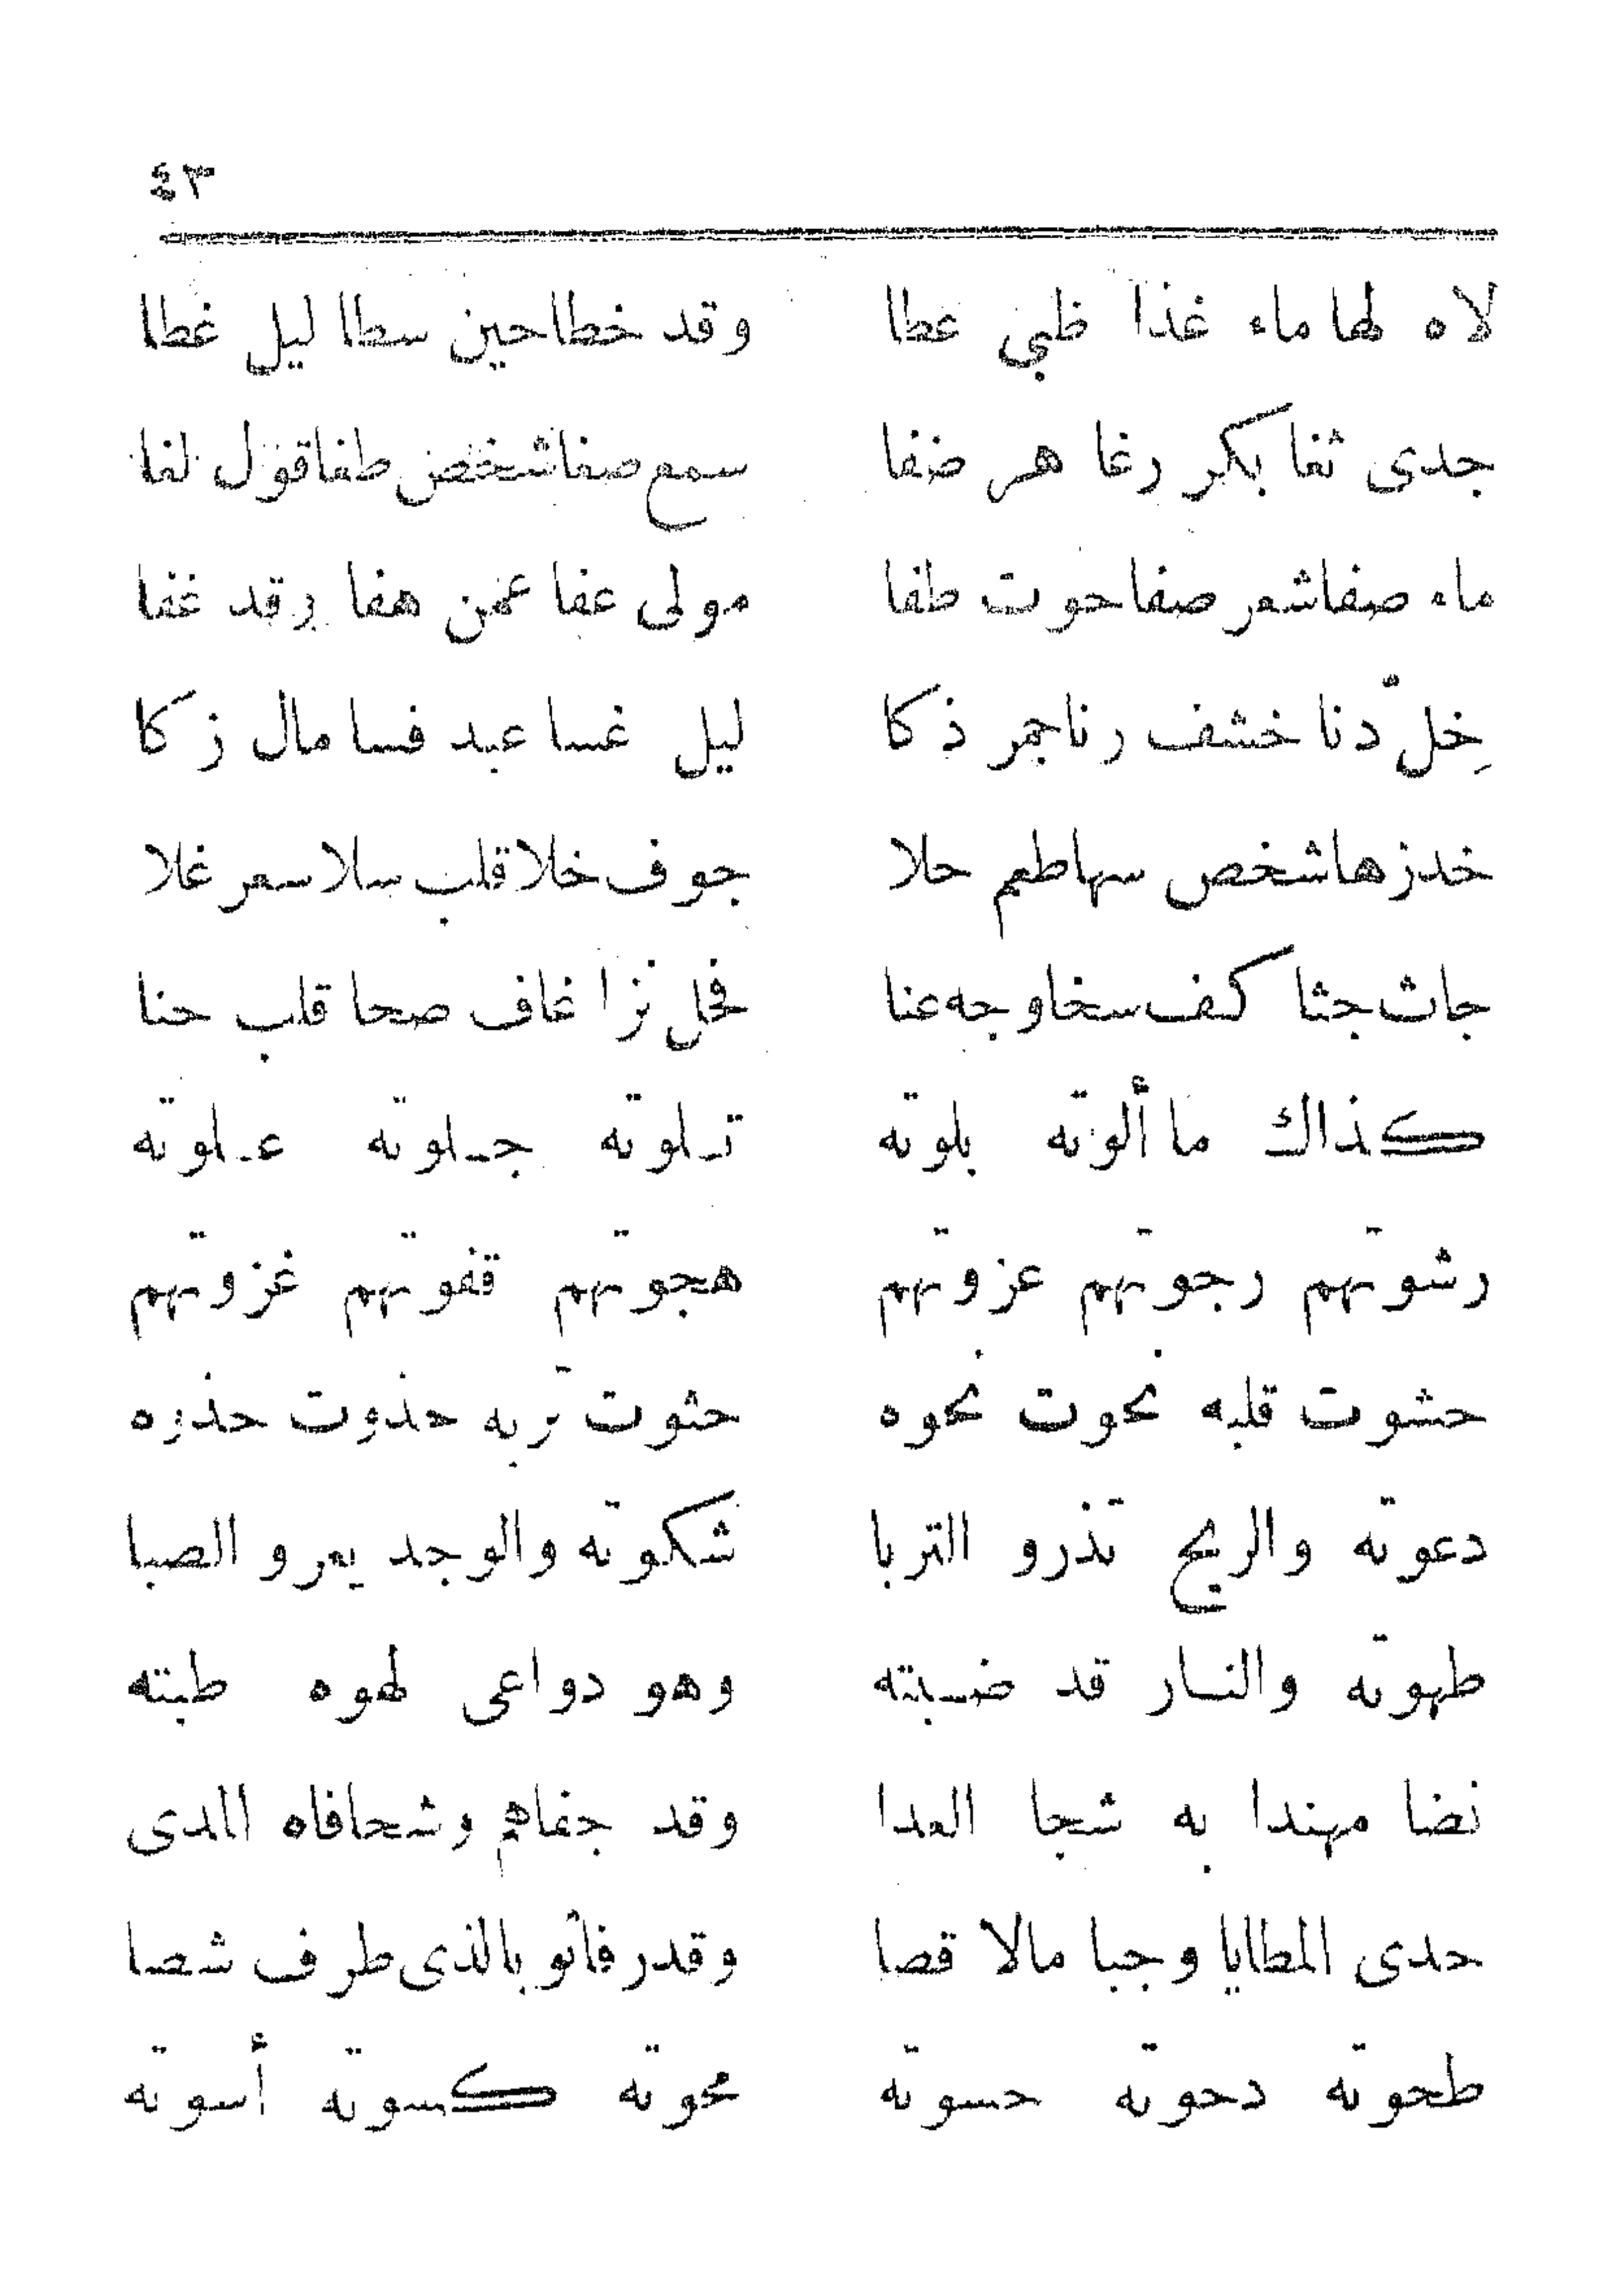 ٤٣
لاه لها ماء غذا ظبي عطا وقد خطا حين سطا ليل غطا
جدى ثغا بكر رغا هر ضغا سمع صغا شخص طغا قول لغا
ماء صفا شعر ضفا حوت طفا مولى عفا عمن هفا وقد غفا
خِلّ دنا خشف رنا جمر ذكا ليل غسا عبد فسا مال زكا
خد زها شخص سها طعم حلا جوف خلا قلب سلا سعر غلا
جاث جثا كف سخا وجه عنا فحل نزا غاف صحا قلب حنا
كذاك ما ألوته بلوته تلوته جلوته علوته
رشوتهم رجوتهم عزوتهم هجوتهم قفوتهم غزوتهم
حشوت قلبه نحوت نحوه حثوت تربه حذوت حذوه
دعوته والريح تذرو التربا شكوته والوجد يعرو الصبا
طهوته والنار قد ضبته وهو دواعى لهوه طبته
نضا مهندا به شجا العدا وقد جفاهم وشحافاه المدى
حدى المطايا وجبا مالا قصا وقد رفأثو بالذى طرف شصا
طحوته دحوته حسوته محوته كسوته أسوته